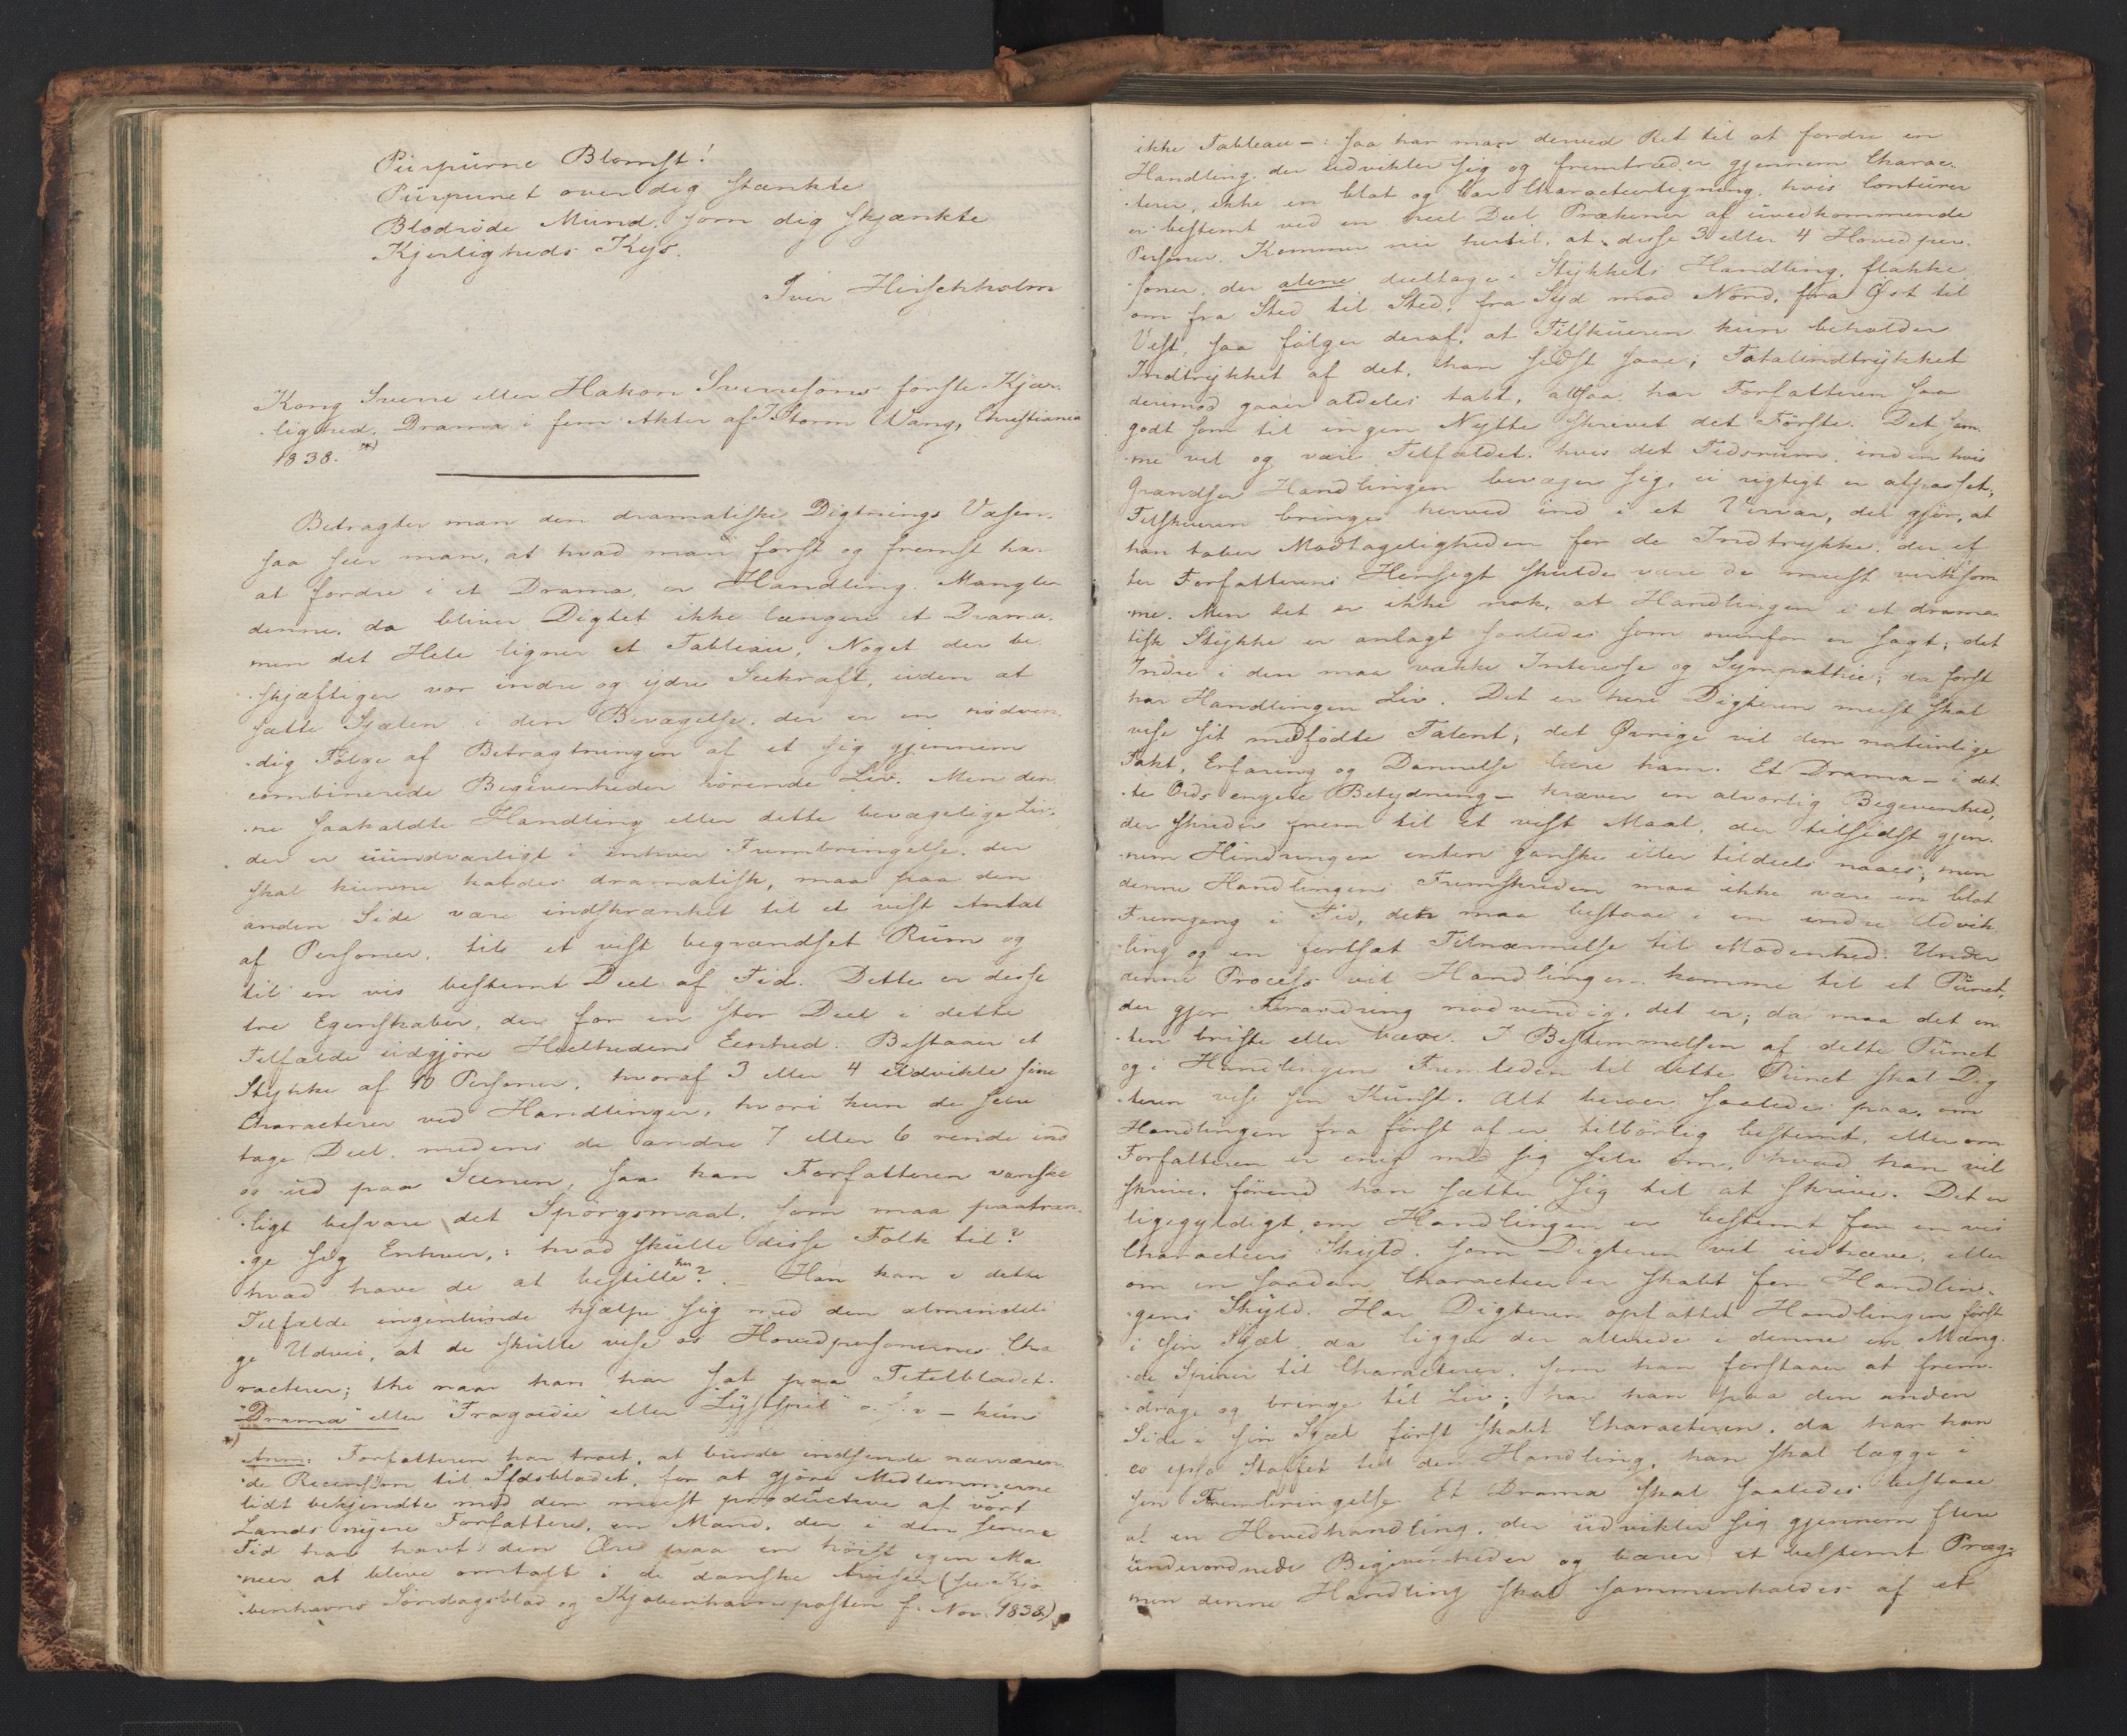 Purpurne Blomst!
Purpuret over dig stænkte
Blodrøde Mund, som dig skjænkte
Kjerligheds Kys.
Iver Hirschholm
Kong Sverre eller Hakon Sverresøns første Kjær-
lighed. Drama i fem Akter af J Storm Wang, Christiania
1838. *)
Betragter man den dramatiske Digtnings Væsen,
saa seer man, at hvad man først og fremst har
at fordre i et Drama, er Handling. Mangler
denne, da bliver Digtet ikke længere et Drama,
men det Hele ligner et Tableau, Noget der be-
skjæftiger vor indre og ydre Seekraft, uden at
sætte Sjælen i den Bevægelse, der er en nødven-
dig Følge af Betragtningen af et sig gjennem
combinerede Begivenheder rörende Liv. Men den-
ne saakaldte Handling eller dette bevægelige Liv,
der er uundværligt i enhver Frembringelse, der
skal kunne kaldes dramatisk, maa paa den
anden Side være indskrænket til et vist Antal
af Personer, til et vist begrændset Rum og
til en vis bestemt Deel af Tid. Dette er disse
tre Egenskaber, der for en stor Deel i dette
Tilfælde udgjøre Heelhedens Eenhed. Bestaaer et
Stykke af 10 Personer, hvoraf 3 eller 4 udvikle sine
Characterer ved Handlinger, hvori kun de selv
tage Deel, medens de andre 7 eller 6 rende ind
og ud paa Scenen, saa kan Forfatteren vanske-
ligt besvare det Spörgsmaal, som maa paatræn-
ge sig Enhver,: hvad skulle disse Folk til?
hvad have de at bestille her? – Han kan i dette
Tilfælde ingenlunde hjælpe sig med den almindeli-
ge Udvei, at de skulle vise os Hovedpersonernes Cha-
racterer; thi naar han har sat paa Titelbladet
"Drama" eller "Tragoedie" eller "Lystspil" o. s. v – kun
*)
Anm: Forfatteren har troet, at burde indsende nærværen-
de Recension til Sfdsbladet, for at gjöre Medlemmerne
lidt bekjendte med den meest productive af vort
Lands nyere Forfattere, en Mand, der i den senere
Tid har havt den Ære paa en höist egen Ma-
neer at blive omtalt i de danske Aviser (see Kjö-
benhavns Söndagsblad og Kjøbenhavnsposten f. Nov. 1838.)
ikke Tableau –: saa har man derved Ret til at fordre en
Handling, der udvikler sig og fremtræder gjennem Charac-
terer, ikke en blot og bar Characteertegning, hvis Conturer
er bestemt ved en heel Deel Prækener af uvedkommende
Personer. Kommer nu hertil, at disse 3 eller 4 Hovedper-
soner, der alene deeltage i Stykkets Handling, flakke
om fra Sted til Sted, fra Syd mod Nord, fra Øst til
Vest, saa følger deraf, at Tilskueren kun beholder
Indtrykket af det, han sidst saae; Totalindtrykket
derimod gaaer aldeles tabt, altsaa har Forfatteren saa
godt som til ingen Nytte skrevet det Förste. Det sam-
me vil og være Tilfældet, hvis det Tidsrum, inden hvis
Grændser Handlingen bevæger sig, ei rigtigt er afpasset;
Tilskueren bringes herved ind i et Virvar, der gjör, at
han taber Modtageligheden for de Indtrykke, der ef-
ter Forfatterens Hensigt skulde være de meest virksom-
me. Men det er ikke nok, at Handlingen i et drama-
tisk Stykke er anlagt saaledes som ovenfor er sagt; det
Indre i den maa vække Interesse og Sympathie; da först
har Handlingen Liv. Det er her Digteren meest skal
vise sit medfödte Talent; det Øvrige vil den naturlige
Takt, Erfaring og Dannelse lære ham. Et Drama – i det-
te Ords engere Betydning – kræver en alvorlig Begivenhed,
der skrider frem til et vist Maal, der tilsidst gjen-
nem Hindringer enten ganske eller tildeels naaes; men
denne Handlingens Fremskriden maa ikke være en blot
Fremgang i Tid, den maa bestaae i en indre Udvik-
ling og en fortsat Tilnærmelse til Modenhed. Under
denne Process vil Handlingen komme til et Punct,
der gjør Forandring nødvendig, det er; da maa det en-
ten briste eller bære. I Bestemmelsen af dette Punct
og i Handlingens Fremleden til dette Punct skal Dig-
teren vise sin Kunst. Alt beroer saaledes paa, om
Handlingen fra först af er tilbørlig bestemt, eller om
Forfatteren er enig med sig selv om, hvad han vil
skrive, førend han sætter sig til at skrive. Det er
ligegyldigt, om Handlingen er bestemt for en vis
Characteers Skyld, som Digteren vil udhæve, eller
om en saadan Characteer er skabt for Handlin-
gens Skyld. Har Digteren opfattet Handlingen först
i sin Sjæl, da ligger der allerede i denne en Mæng-
de Spirer til Characterer, som han forstaaer at frem-
drage og bringe til Liv; har han paa den anden
Side i sin Sjæl først skabt Characteren, da har han
eo ipso Stoffet til den Handling, han skal lægge i
sin Frembringelse. Et Drama skal saaledes bestaae
af en Hovedhandling, der udvikler sig gjennem flere
underordnede Begivenheder og bærer et bestemt Præg;
men denne Handling skal sammenholdes af et